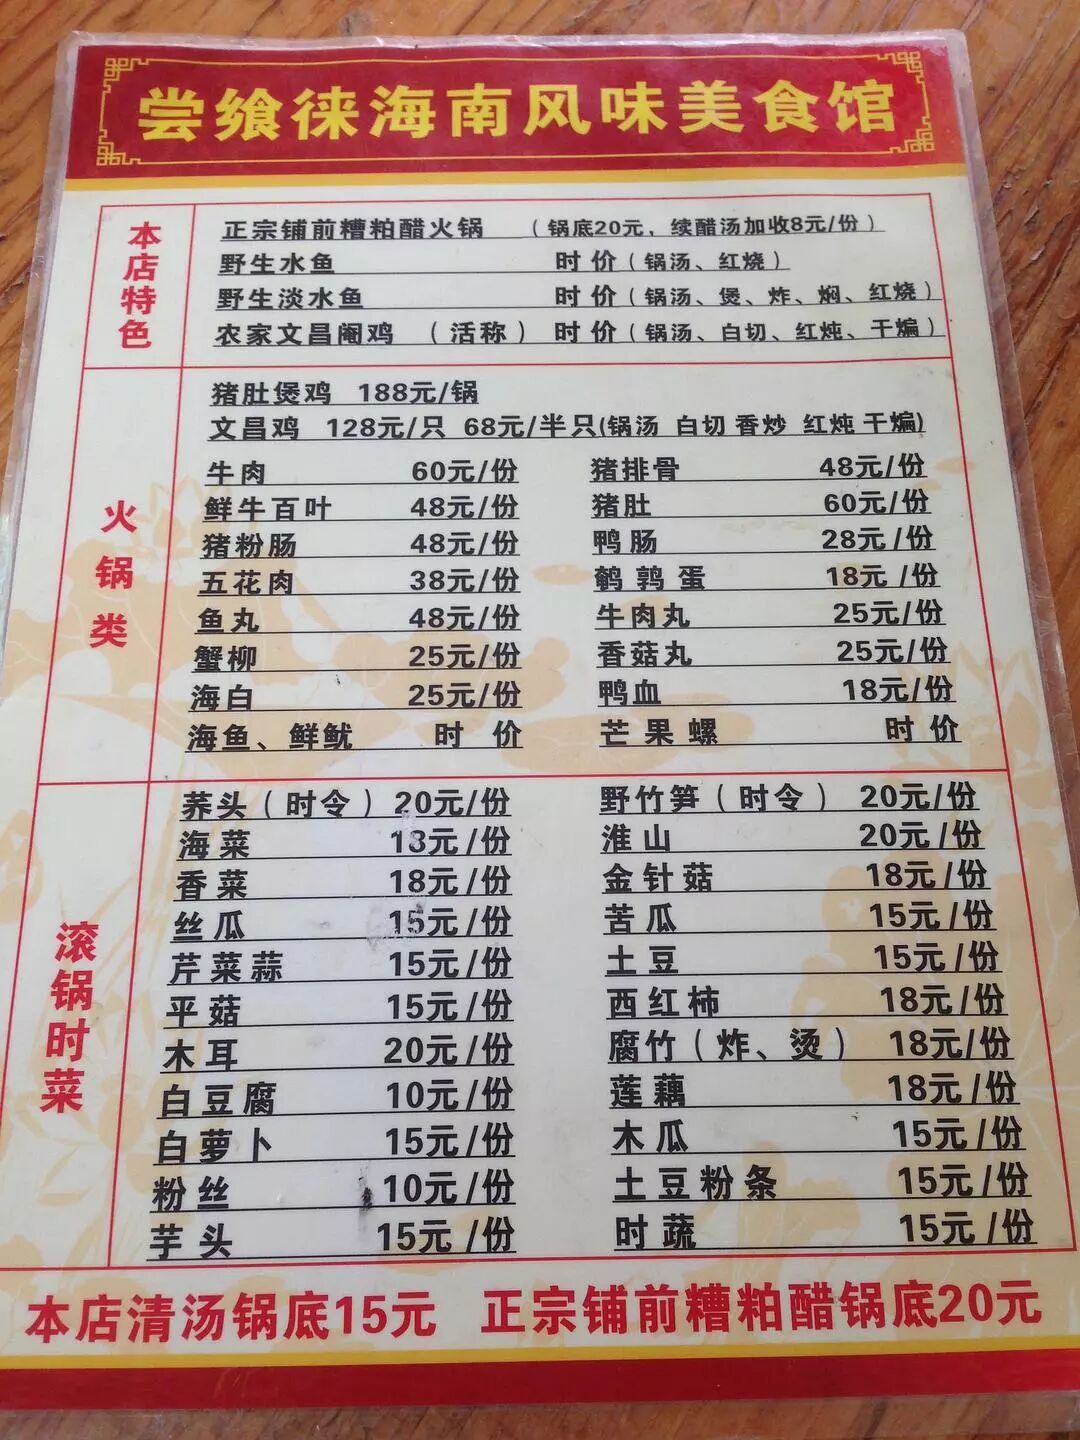 尝飨徕海南风味美食馆
本店特色
正宗铺前糟粕醋火锅 （锅底20元，续醋汤加收8元/份）
野生水鱼 时价（锅汤、红烧）
野生淡水鱼 时价（锅汤、煲、炸、焖、红烧）
农家文昌阉鸡 （活称） 时价（锅汤、白切、红炖、干煸）
火锅类
猪肚煲鸡 188元/锅
文昌鸡 128元/只 68元/半只(锅汤 白切 香炒 红炖 干煸)
牛肉 60元/份 猪排骨 48元/份
鲜牛百叶 48元/份 猪肚 60元/份
猪粉肠 48元/份 鸭肠 28元/份
五花肉 38元/份 鹌鹑蛋 18元/份
鱼丸 48元/份 牛肉丸 25元/份
蟹柳 25元/份 香菇丸 25元/份
海白 25元/份 鸭血 18元/份
海鱼、鲜鱿 时价 芒果螺 时价
滚锅时菜
荞头（时令）20元/份 野竹笋（时令） 20元/份
海菜 18元/份 淮山 20元/份
香菜 18元/份 金针菇 18元/份
丝瓜 15元/份 苦瓜 15元/份
芹菜蒜 15元/份 土豆 15元/份
平菇 15元/份 西红柿 18元/份
木耳 20元/份 腐竹（炸、烫） 18元/份
白豆腐 10元/份 莲藕 18元/份
白萝卜 15元/份 木瓜 15元/份
粉丝 10元/份 土豆粉条 15元/份
芋头 15元/份 时蔬 15元/份
本店清汤锅底15元 正宗铺前糟粕醋锅底20元